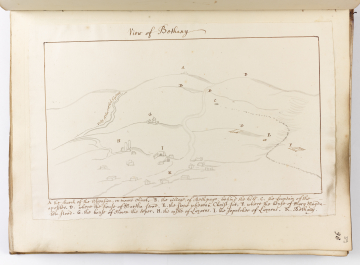 View of Bethany
A. the church of the Ascension, on mount Olivet. B. the village of Bethpage behind the hill. C. the fountain of the
apostles. D. where the house of Martha stood. E. the stone whereon Christ sat. F. where the house of Mary Magda-
len stood. G. the house of Simon the leper. H. the castle of Lazarus. I. the sepulchre of Lazarus. K. Bethany